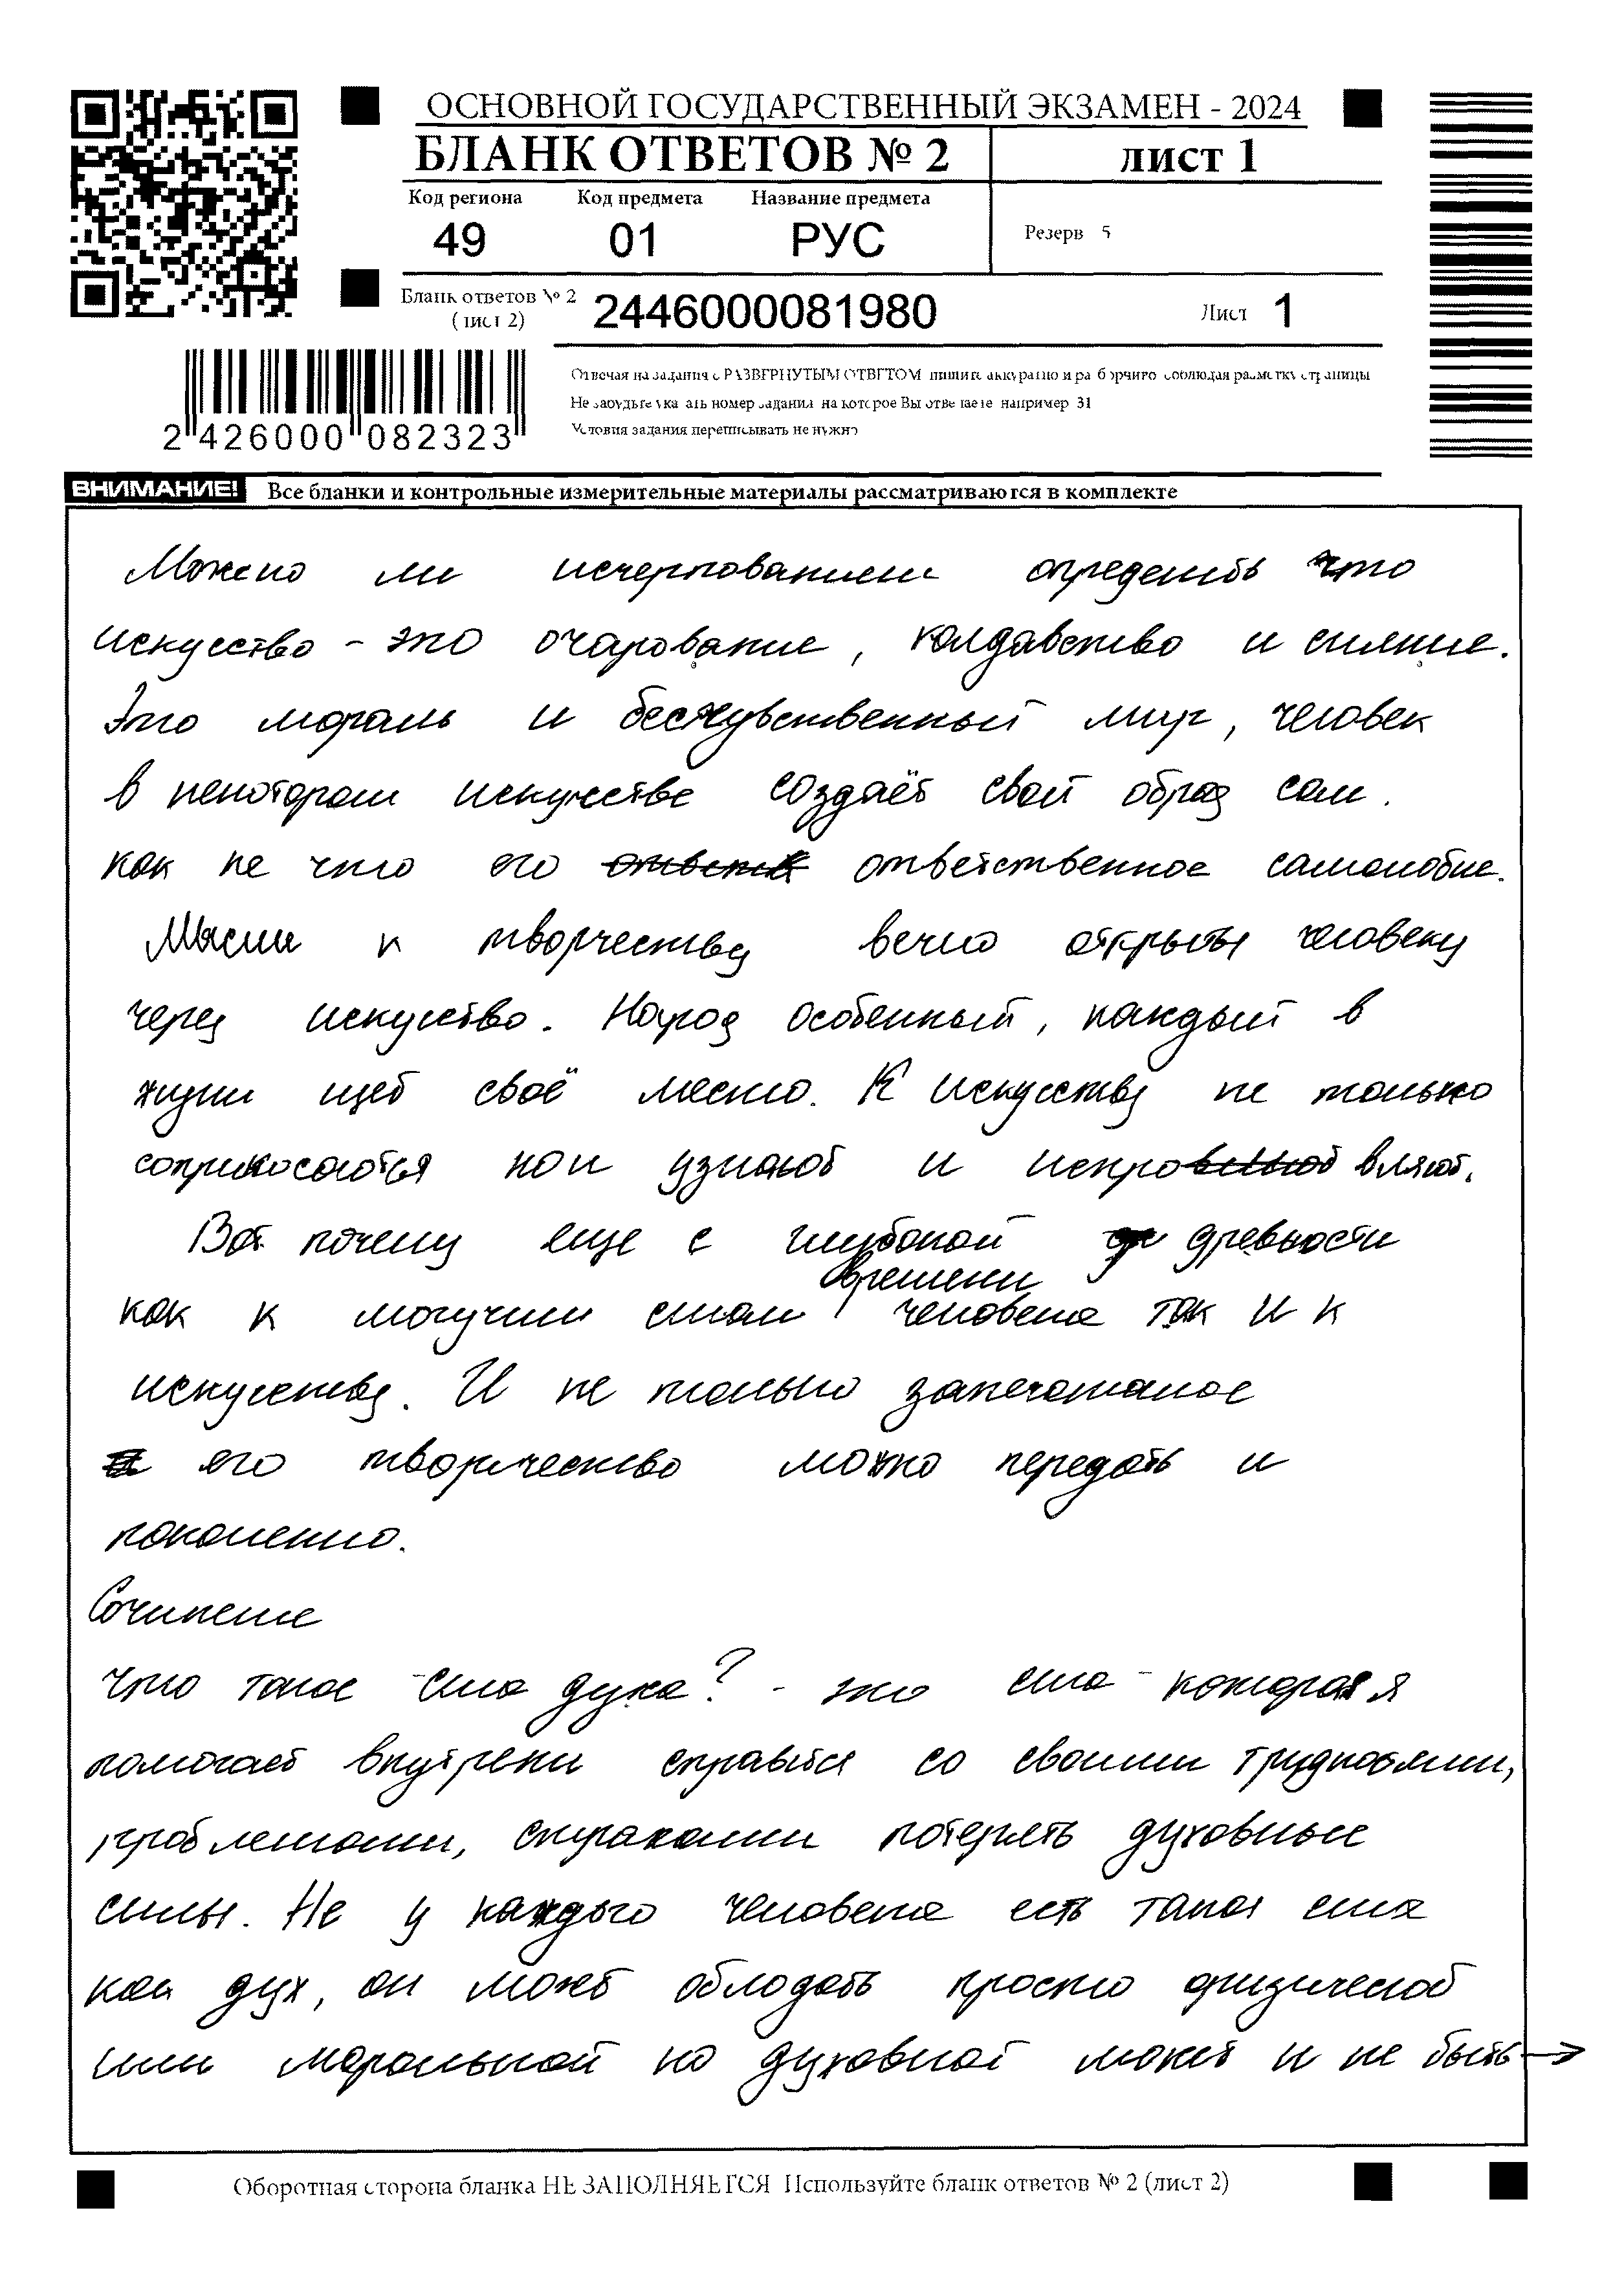 ОСНОВНОЙ ГОСУДАРСТВЕННЫЙ ЭКЗАМЕН - 2024
БЛАНК ОТВЕТОВ № 2
ЛИСТ 1
Код региона Код предмета Название предмета
49 01 РУС
Резерв 5
Бланк ответов № 2
(лист 2)
2446000081980
Лист 1
2 426000 082323
Отвечая на задания с РАЗВЕРНУТЫМ ОТВЕТОМ пишите аккуратно и разборчиво соблюдая разметку страницы
Не забудьте указать номер задания на которое Вы отвечаете например 31
Условия задания переписывать не нужно
ВНИМАНИЕ! Все бланки и контрольные измерительные материалы рассматриваются в комплекте
Можно ли исчерпованием определить что
искусство - это очарование, колдавство и сияние.
Это мораль и бесчувственный мир, человек
в некотором искучстве создаёт свой образ сам.
как не что его ответственное самолюбие.
Мысли к творчеству вечно открыты человеку
через искуство. Народ особенный, каждый в
жизни ищет своё место. К искусству не только
соприкосаются но и узнают и исправляют.
Вот почему еще с глубокой древности
времени
как к могучим силам человека так и к
искусству. И не только запечатаное
его творичество можно передать и
поколению.
Сочинение
Что такое сила духа? - это сила - которая
помогает внутрени справится со своими трудностями,
проблемами, страхами потерять духовные
силы. Не у каждого человека есть такая сила
как дух, он может облодать просто физической
или моральной но духовной может и не быть →
Оборотная сторона бланка НЕ ЗАПОЛНЯЕТСЯ Используйте бланк ответов № 2 (лист 2)